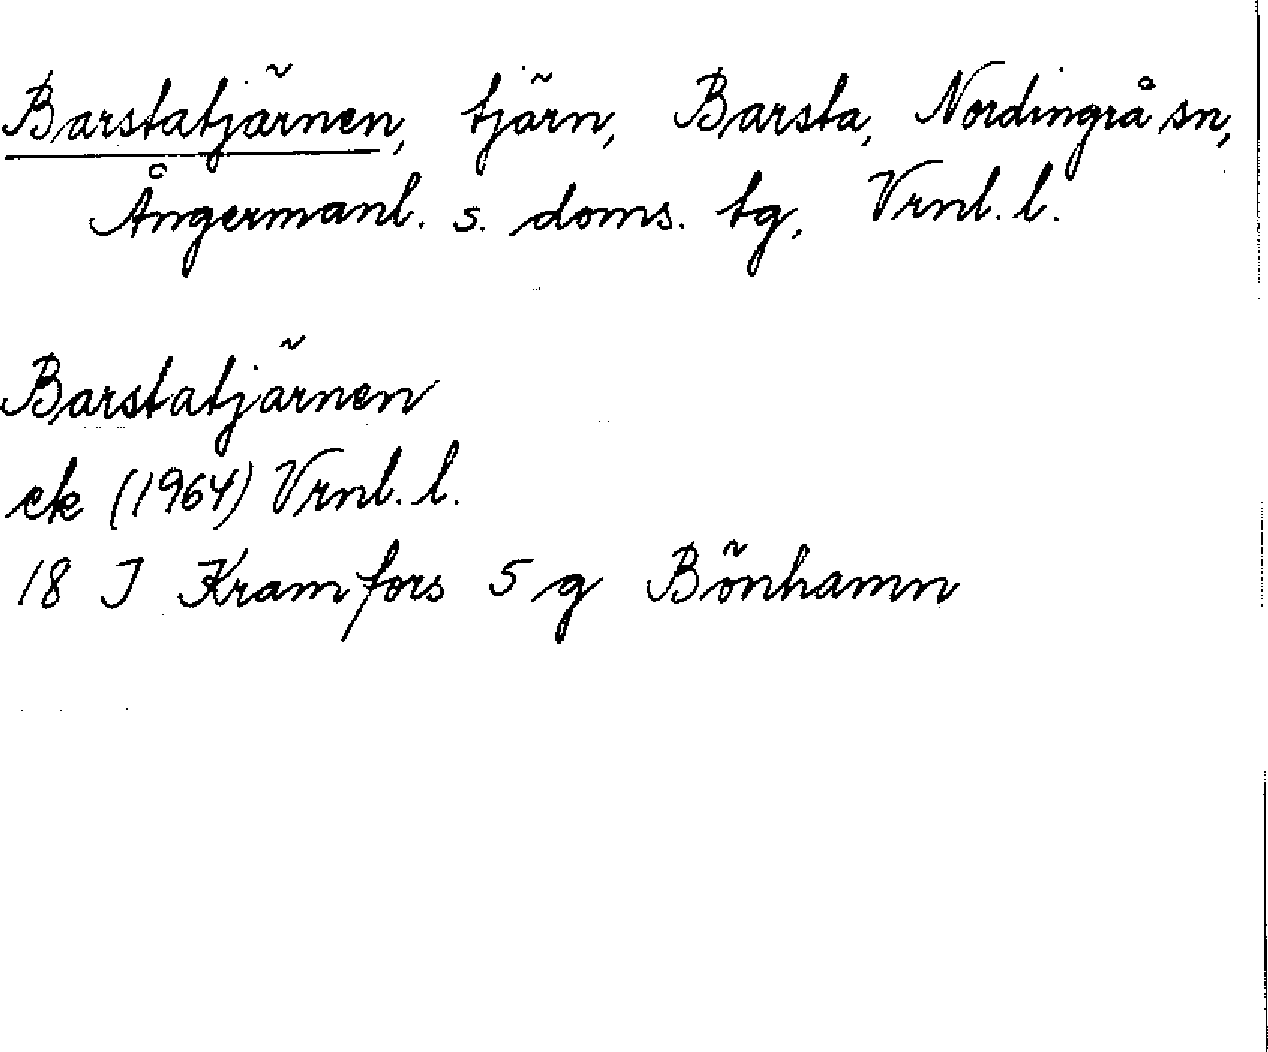 Barstatjärnen, tjärn, Barsta, Nordingrå sn,
Ångermanl. s. doms. tg, Vrnl. l.
Barstatjärnen
ek (1964) Vrnl. l.
18 J Kramfors 5 g Bönhamn